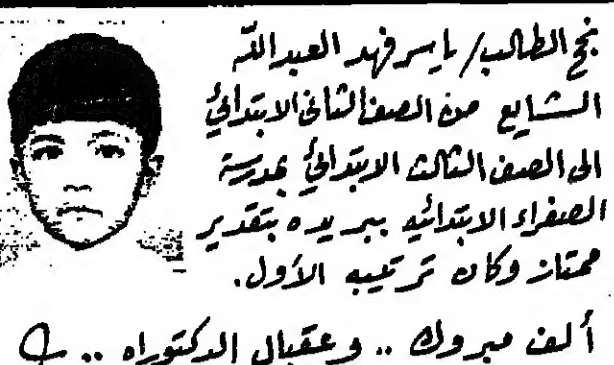 نجح الطالب/ ياسر فهد العبدالله
الشايع من الصف الثاني الابتدائي
الى الصف الثالث الابتدائي بمدرسة
الصفراء الابتدائيه ببريده بتقدير
ممتاز وكان ترتيبه الأول.
ألف مبروك .. وعقبال الدكتوراه ..